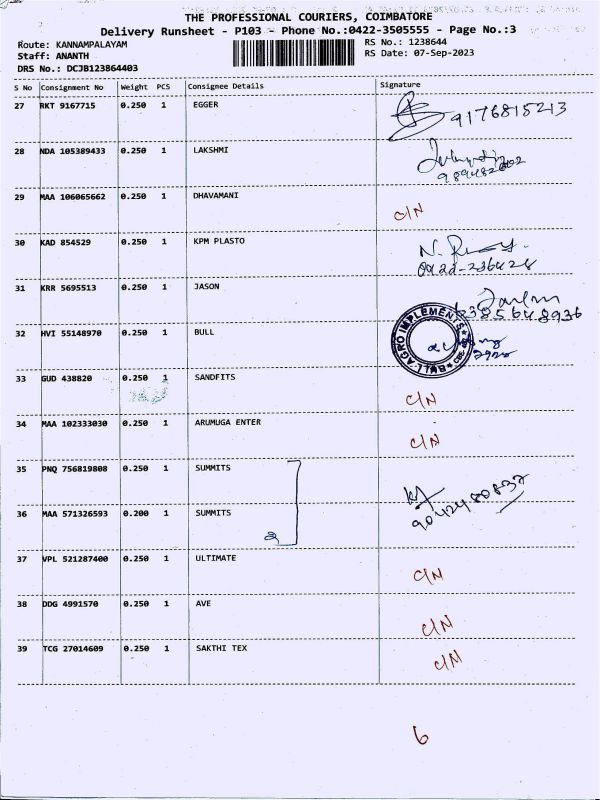 THE PROFESSIONAL COURIERS, COIMBATORE
Delivery Runsheet - P103 - Phone No.:0422-3505555 - Page No.:3
Route: KANNAMPALAYAM
RS No.: 1238644
Staff: ANANTH
RS Date: 07-Sep-2023
DRS No.: DCJB123864403
S No Consignment No Weight PCS Consignee Details Signature
27 RKT 9167715 0.250 1 EGGER 9176815213
28 NDA 105389433 0.250 1 LAKSHMI
29 MAA 106065662 0.250 1 DHAVAMANI C/N
30 KAD 854529 0.250 1 KPM PLASTO
31 KRR 5695513 0.250 1 JASON
32 HVI 55148970 0.250 1 BULL BULL AGRO IMPLEMENTS
33 GUD 438820 0.250 1 SANDFITS C/N
34 MAA 102333030 0.250 1 ARUMUGA ENTER C/N
35 PNQ 756819808 0.250 1 SUMMITS
36 MAA 571326593 0.200 1 SUMMITS 2 9042480837
37 VPL 521287400 0.250 1 ULTIMATE C/N
38 DDG 4991570 0.250 1 AVE C/N
39 TCG 27014609 0.250 1 SAKTHI TEX C/N
6